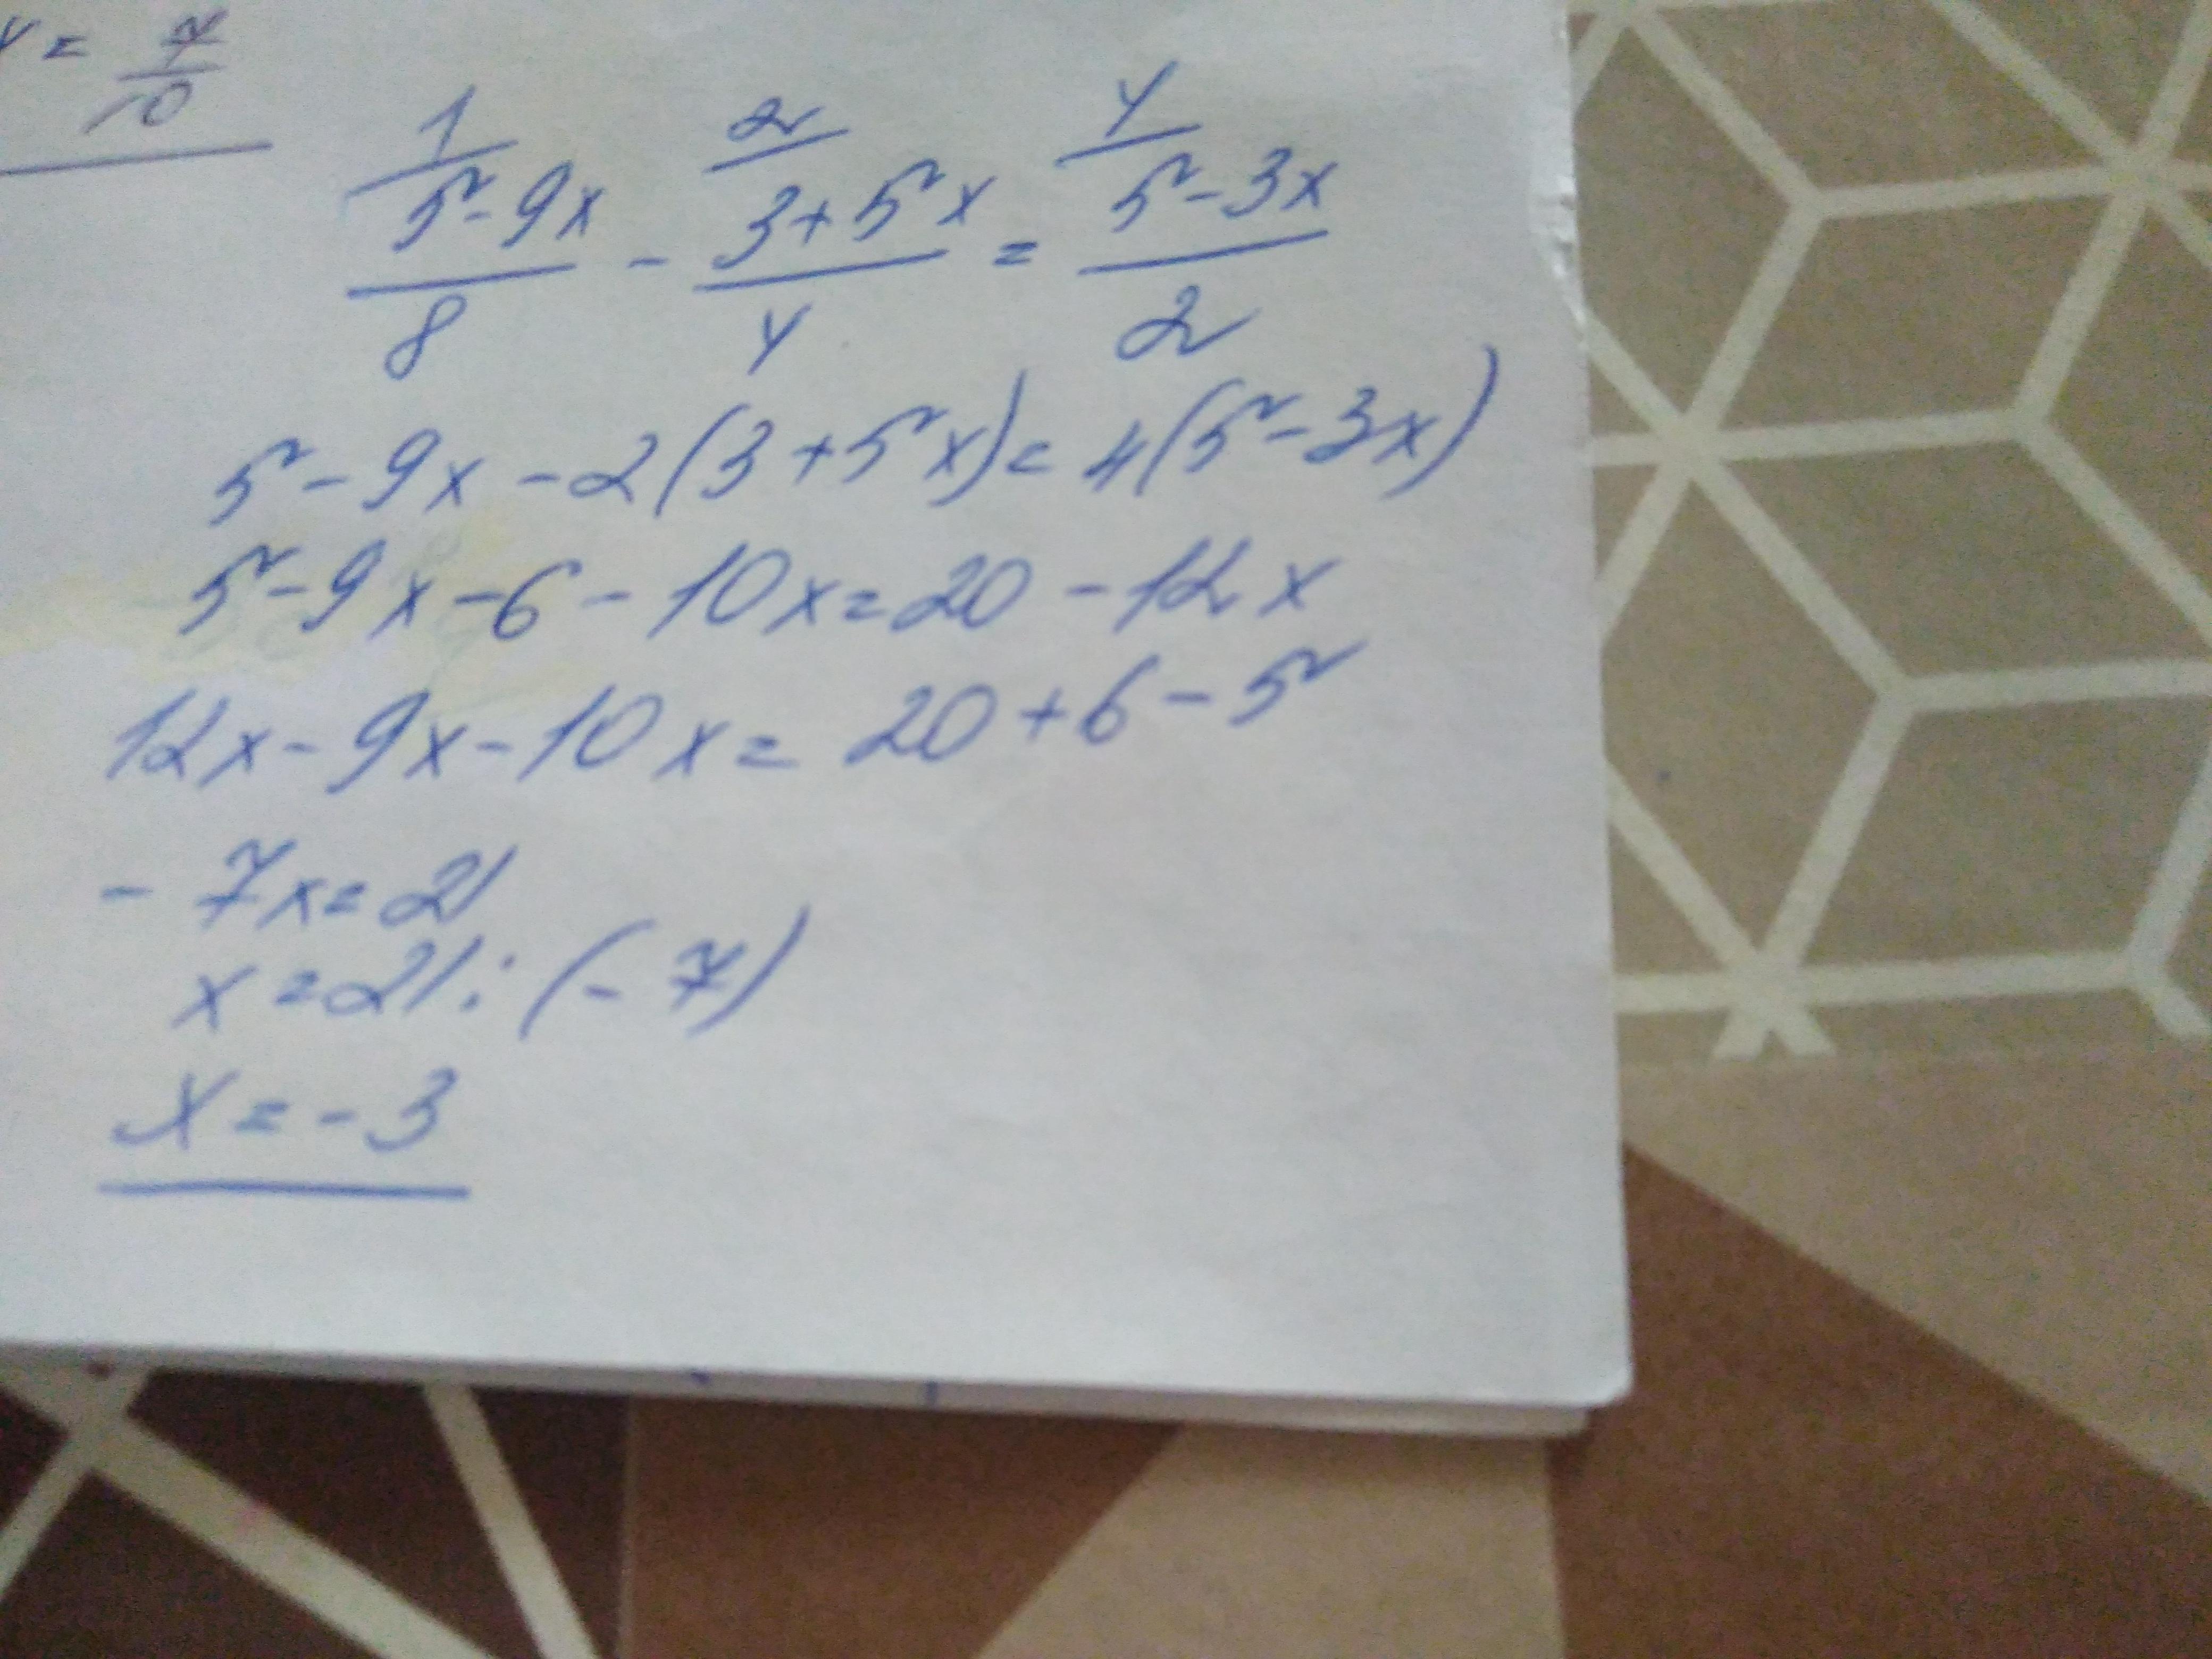 x = 7/10
1 2 4
(5-9x)/8 - (3+5x)/4 = (5-3x)/2
5-9x-2(3+5x)=4(5-3x)
5-9x-6-10x=20-12x
12x-9x-10x=20+6-5
-7x=21
x=21:(-7)
x=-3